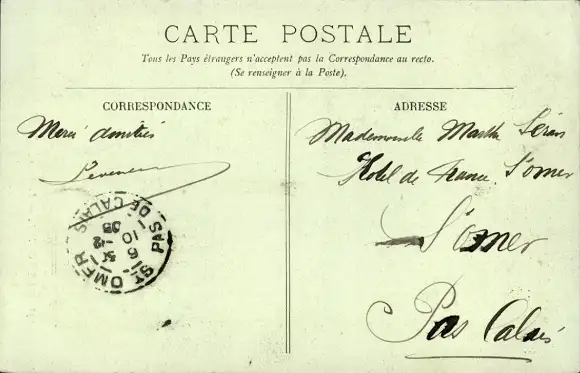 CARTE POSTALE
Tous les Pays étrangers n'acceptent pas la Correspondance au recto.
(Se renseigner à la Poste).
CORRESPONDANCE
Merci amitiés
ST OMER
PAS DE CALAIS
ADRESSE
Mademoiselle Marthe
Hotel de France St Omer
St Omer
Pas Calais